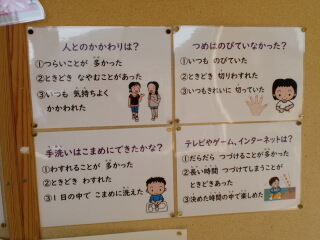 人とのかかわりは？
①つらいことが 多かった
②ときどき なやむことがあった
③いつも 気持ちよく
かかわれた
つめはのびていなかった？
①いつも のびていた
②ときどき 切りわすれた
③いつもきれいに 切っていた
手洗いはこまめにできたかな？
①わすれることが 多かった
②ときどき わすれた
③１日の中で こまめに洗えた
テレビやゲーム、インターネットは？
①だらだら つづけることが多かった
②長い時間 つづけてしまうことが
ときどきあった
③決めた時間の中で楽しめた